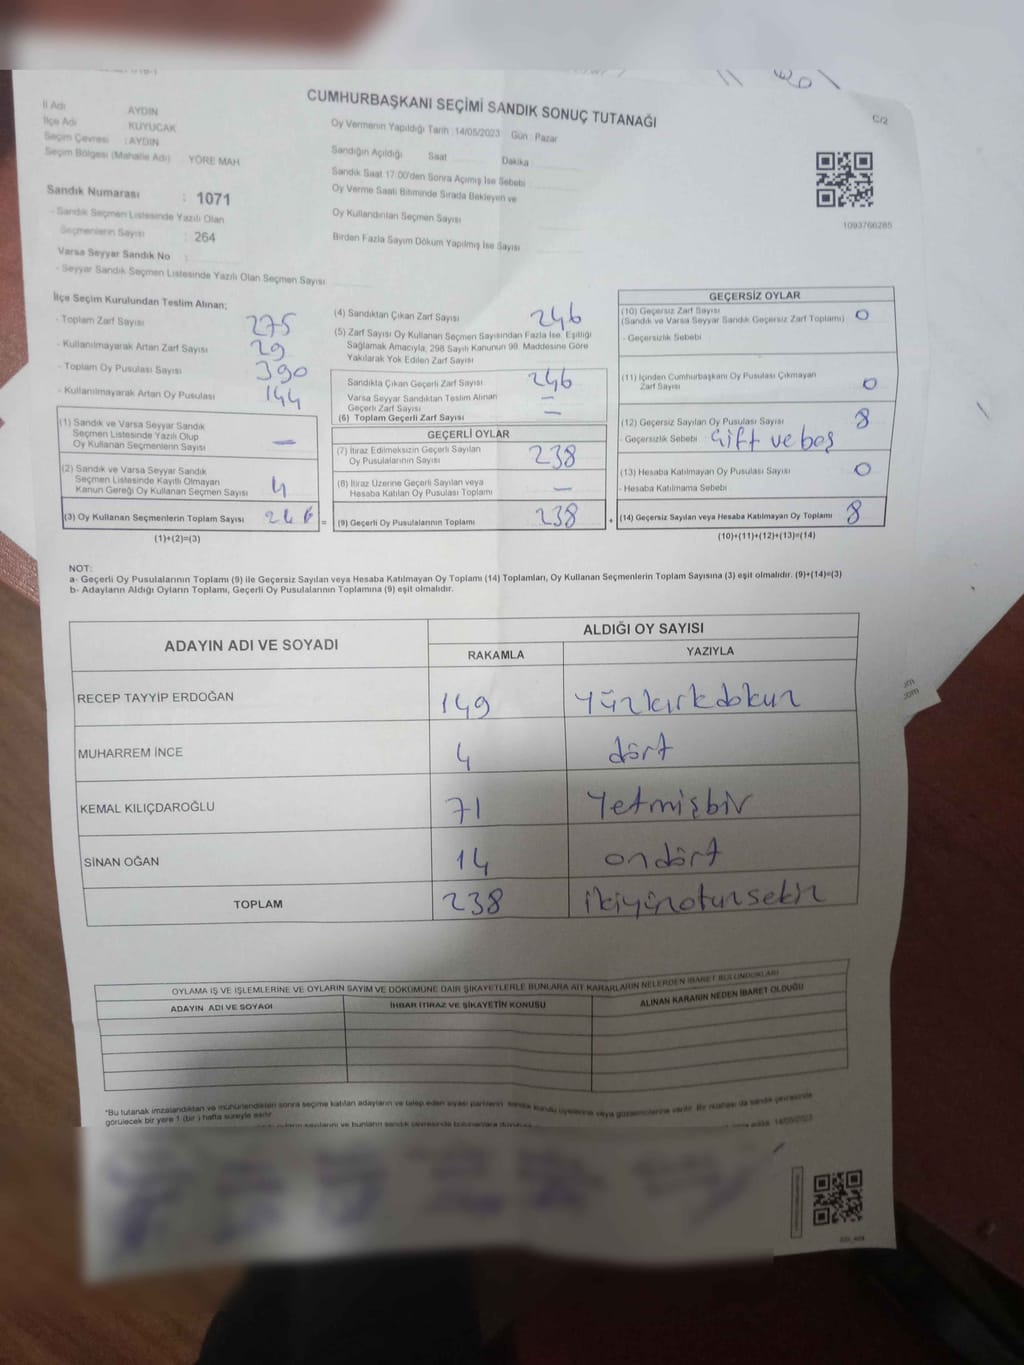 CUMHURBAŞKANI SEÇİMİ SANDIK SONUÇ TUTANAĞI
C/2
İl Adı AYDIN
İlçe Adı KUYUCAK
Seçim Çevresi : AYDIN
Seçim Bölgesi (Mahalle Adı) YÖRE MAH
Sandık Numarası : 1071
- Sandık Seçmen Listesinde Yazılı Olan
Seçmenlerin Sayısı : 264
Varsa Seyyar Sandık No :
- Seyyar Sandık Seçmen Listesinde Yazılı Olan Seçmen Sayısı
Oy Vermenin Yapıldığı Tarih : 14/05/2023 Gün : Pazar
Sandığın Açıldığı Saat Dakika
Sandık Saat 17:00'den Sonra Açımış İse Sebebi
Oy Verme Saati Bitiminde Sırada Bekleyen ve
Oy Kullandırılan Seçmen Sayısı
Birden Fazla Sayım Döküm Yapılmış İse Sayısı
1093766285
İlçe Seçim Kurulundan Teslim Alınan;
- Toplam Zarf Sayısı 275
- Kullanılmayarak Artan Zarf Sayısı 29
- Toplam Oy Pusulası Sayısı 390
- Kullanılmayarak Artan Oy Pusulası 144
(1) Sandık ve Varsa Seyyar Sandık
Seçmen Listesinde Yazılı Olup
Oy Kullanan Seçmenlerin Sayısı —
(2) Sandık ve Varsa Seyyar Sandık
Seçmen Listesinde Kayıtlı Olmayan
Kanun Gereği Oy Kullanan Seçmen Sayısı 4
(3) Oy Kullanan Seçmenlerin Toplam Sayısı 246 =
(1)+(2)=(3)
(4) Sandıktan Çıkan Zarf Sayısı 246
(5) Zarf Sayısı Oy Kullanan Seçmen Sayısından Fazla İse, Eşitliği
Sağlamak Amacıyla, 298 Sayılı Kanunun 98. Maddesine Göre
Yakılarak Yok Edilen Zarf Sayısı
Sandıkta Çıkan Geçerli Zarf Sayısı 246
Varsa Seyyar Sandıktan Teslim Alınan
Geçerli Zarf Sayısı —
(6) Toplam Geçerli Zarf Sayısı —
GEÇERLİ OYLAR
(7) İtiraz Edilmeksizin Geçerli Sayılan
Oy Pusulalarının Sayısı 238
(8) İtiraz Üzerine Geçerli Sayılan veya
Hesaba Katılan Oy Pusulası Toplamı —
(9) Geçerli Oy Pusulalarının Toplamı 238 +
GEÇERSİZ OYLAR
(10) Geçersiz Zarf Sayısı
(Sandık ve Varsa Seyyar Sandık Geçersiz Zarf Toplamı) 0
- Geçersizlik Sebebi
(11) İçinden Cumhurbaşkanı Oy Pusulası Çıkmayan
Zarf Sayısı 0
(12) Geçersiz Sayılan Oy Pusulası Sayısı 8
- Geçersizlik Sebebi : Çift ve boş
(13) Hesaba Katılmayan Oy Pusulası Sayısı 0
- Hesaba Katılmama Sebebi
(14) Geçersiz Sayılan veya Hesaba Katılmayan Oy Toplamı 8
(10)+(11)+(12)+(13)=(14)
NOT:
a- Geçerli Oy Pusulalarının Toplamı (9) ile Geçersiz Sayılan veya Hesaba Katılmayan Oy Toplamı (14) Toplamları, Oy Kullanan Seçmenlerin Toplam Sayısına (3) eşit olmalıdır. (9)+(14)=(3)
b- Adayların Aldığı Oyların Toplamı, Geçerli Oy Pusulalarının Toplamına (9) eşit olmalıdır.
ADAYIN ADI VE SOYADI
ALDIĞI OY SAYISI
RAKAMLA YAZIYLA
RECEP TAYYİP ERDOĞAN 149 Yüzkırkdokuz
MUHARREM İNCE 4 dört
KEMAL KILIÇDAROĞLU 71 Yetmişbir
SİNAN OĞAN 14 ondört
TOPLAM 238 ikiyüzotuzsekiz
OYLAMA İŞ VE İŞLEMLERİNE VE OYLARIN SAYIM VE DÖKÜMÜNE DAİR ŞİKAYETLERLE BUNLARA AİT KARARLARIN NELERDEN İBARET BULUNDUKLARI
ADAYIN ADI VE SOYADI İHBAR İTİRAZ VE ŞİKAYETİN KONUSU ALINAN KARARIN NEDEN İBARET OLDUĞU
*Bu tutanak imzalandıktan ve mühürlendikten sonra seçime katılan adayların ve talep eden siyasi partilerin sandık kurulu üyelerine veya gözlemcilerine verilir. Bir nüshası da sandık çevresinde
görülecek bir yere 1 (bir ) hafta süreyle asılır.
14/05/2023